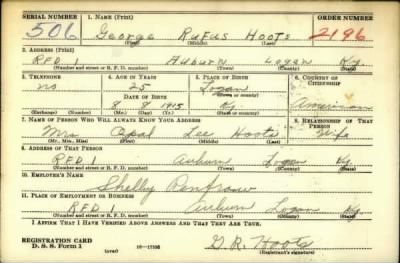 SERIAL NUMBER 1. NAME (Print) ORDER NUMBER
506 George Rufus Hoots 2196
(First) (Middle) (Last)
2. ADDRESS (Print)
RFD 1 Auburn Logan Ky.
(Number and street or R. F. D. number) (Town) (County) (State)
3. TELEPHONE 4. AGE IN YEARS 5. PLACE OF BIRTH 6. COUNTRY OF CITIZENSHIP
no 25 Logan
DATE OF BIRTH (Town or county)
8 8 1915 Ky. American
(Exchange) (Number) (Mo.) (Day) (Yr.) (State or country)
7. NAME OF PERSON WHO WILL ALWAYS KNOW YOUR ADDRESS 8. RELATIONSHIP OF THAT PERSON
Mrs Opal Lee Hoots Wife
(Mr., Mrs., Miss) (First) (Middle) (Last)
9. ADDRESS OF THAT PERSON
RFD 1 Auburn Logan Ky.
(Number and street or R. F. D. number) (Town) (County) (State)
10. EMPLOYER'S NAME
Shelby
11. PLACE OF EMPLOYMENT OR BUSINESS
RFD 1 Auburn Logan Ky.
(Number and street or R. F. D. number) (Town) (County) (State)
I AFFIRM THAT I HAVE VERIFIED ABOVE ANSWERS AND THAT THEY ARE TRUE.
REGISTRATION CARD
D. S. S. Form 1 (over) G. R. Hoots
(Registrant's signature)